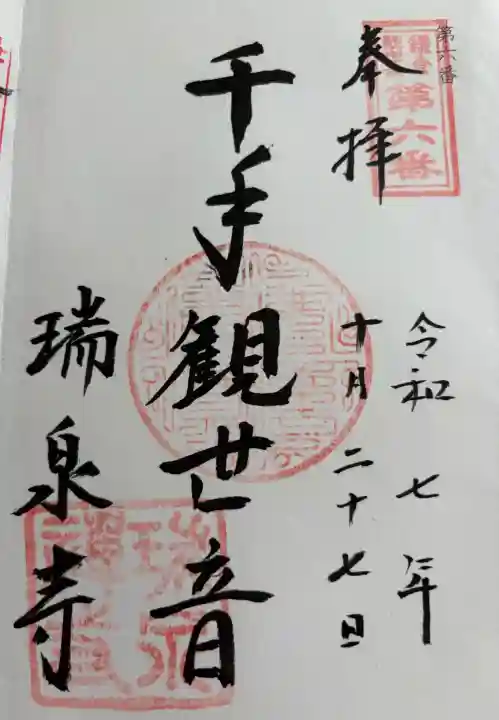 第六番
第六番
奉拝
令和七年
十月二十七日
千手観世音
瑞泉寺